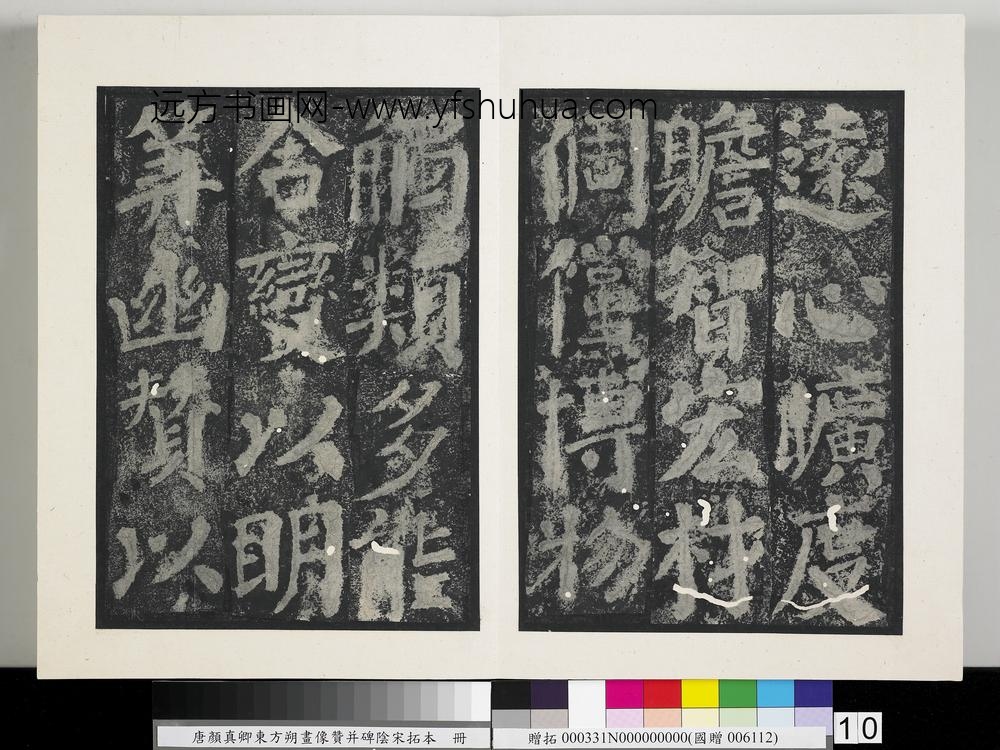 远方书画网-www.yfshuhua.com
遠心曠度
贍智宏材
倜儻博物
觸類多能
合變以明
筭幽贊以
唐顏真卿東方朔畫像贊并碑陰宋拓本 冊
贈拓 000331N000000000(國贈 006112)
10